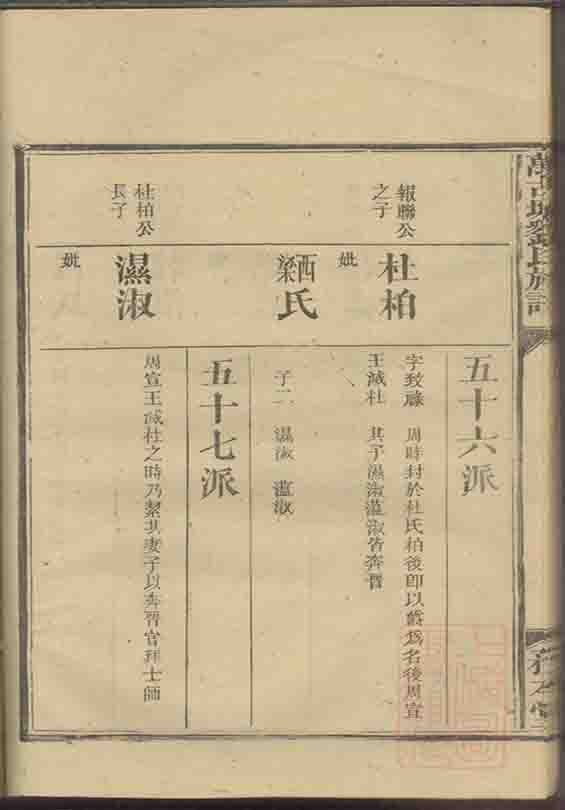 劉氏族譜
五十六派
報聯公
之子
杜柏
字致祿 周時封於杜氏柏後即以爵爲名後周宣
王滅杜 其子濕淑溢淑皆奔晋
妣
西梁氏
子二 濕淑 溢淑
五十七派
杜柏公
長子
濕淑
周宣王滅杜之時乃絜其妻子以奔晋官拜士師
妣